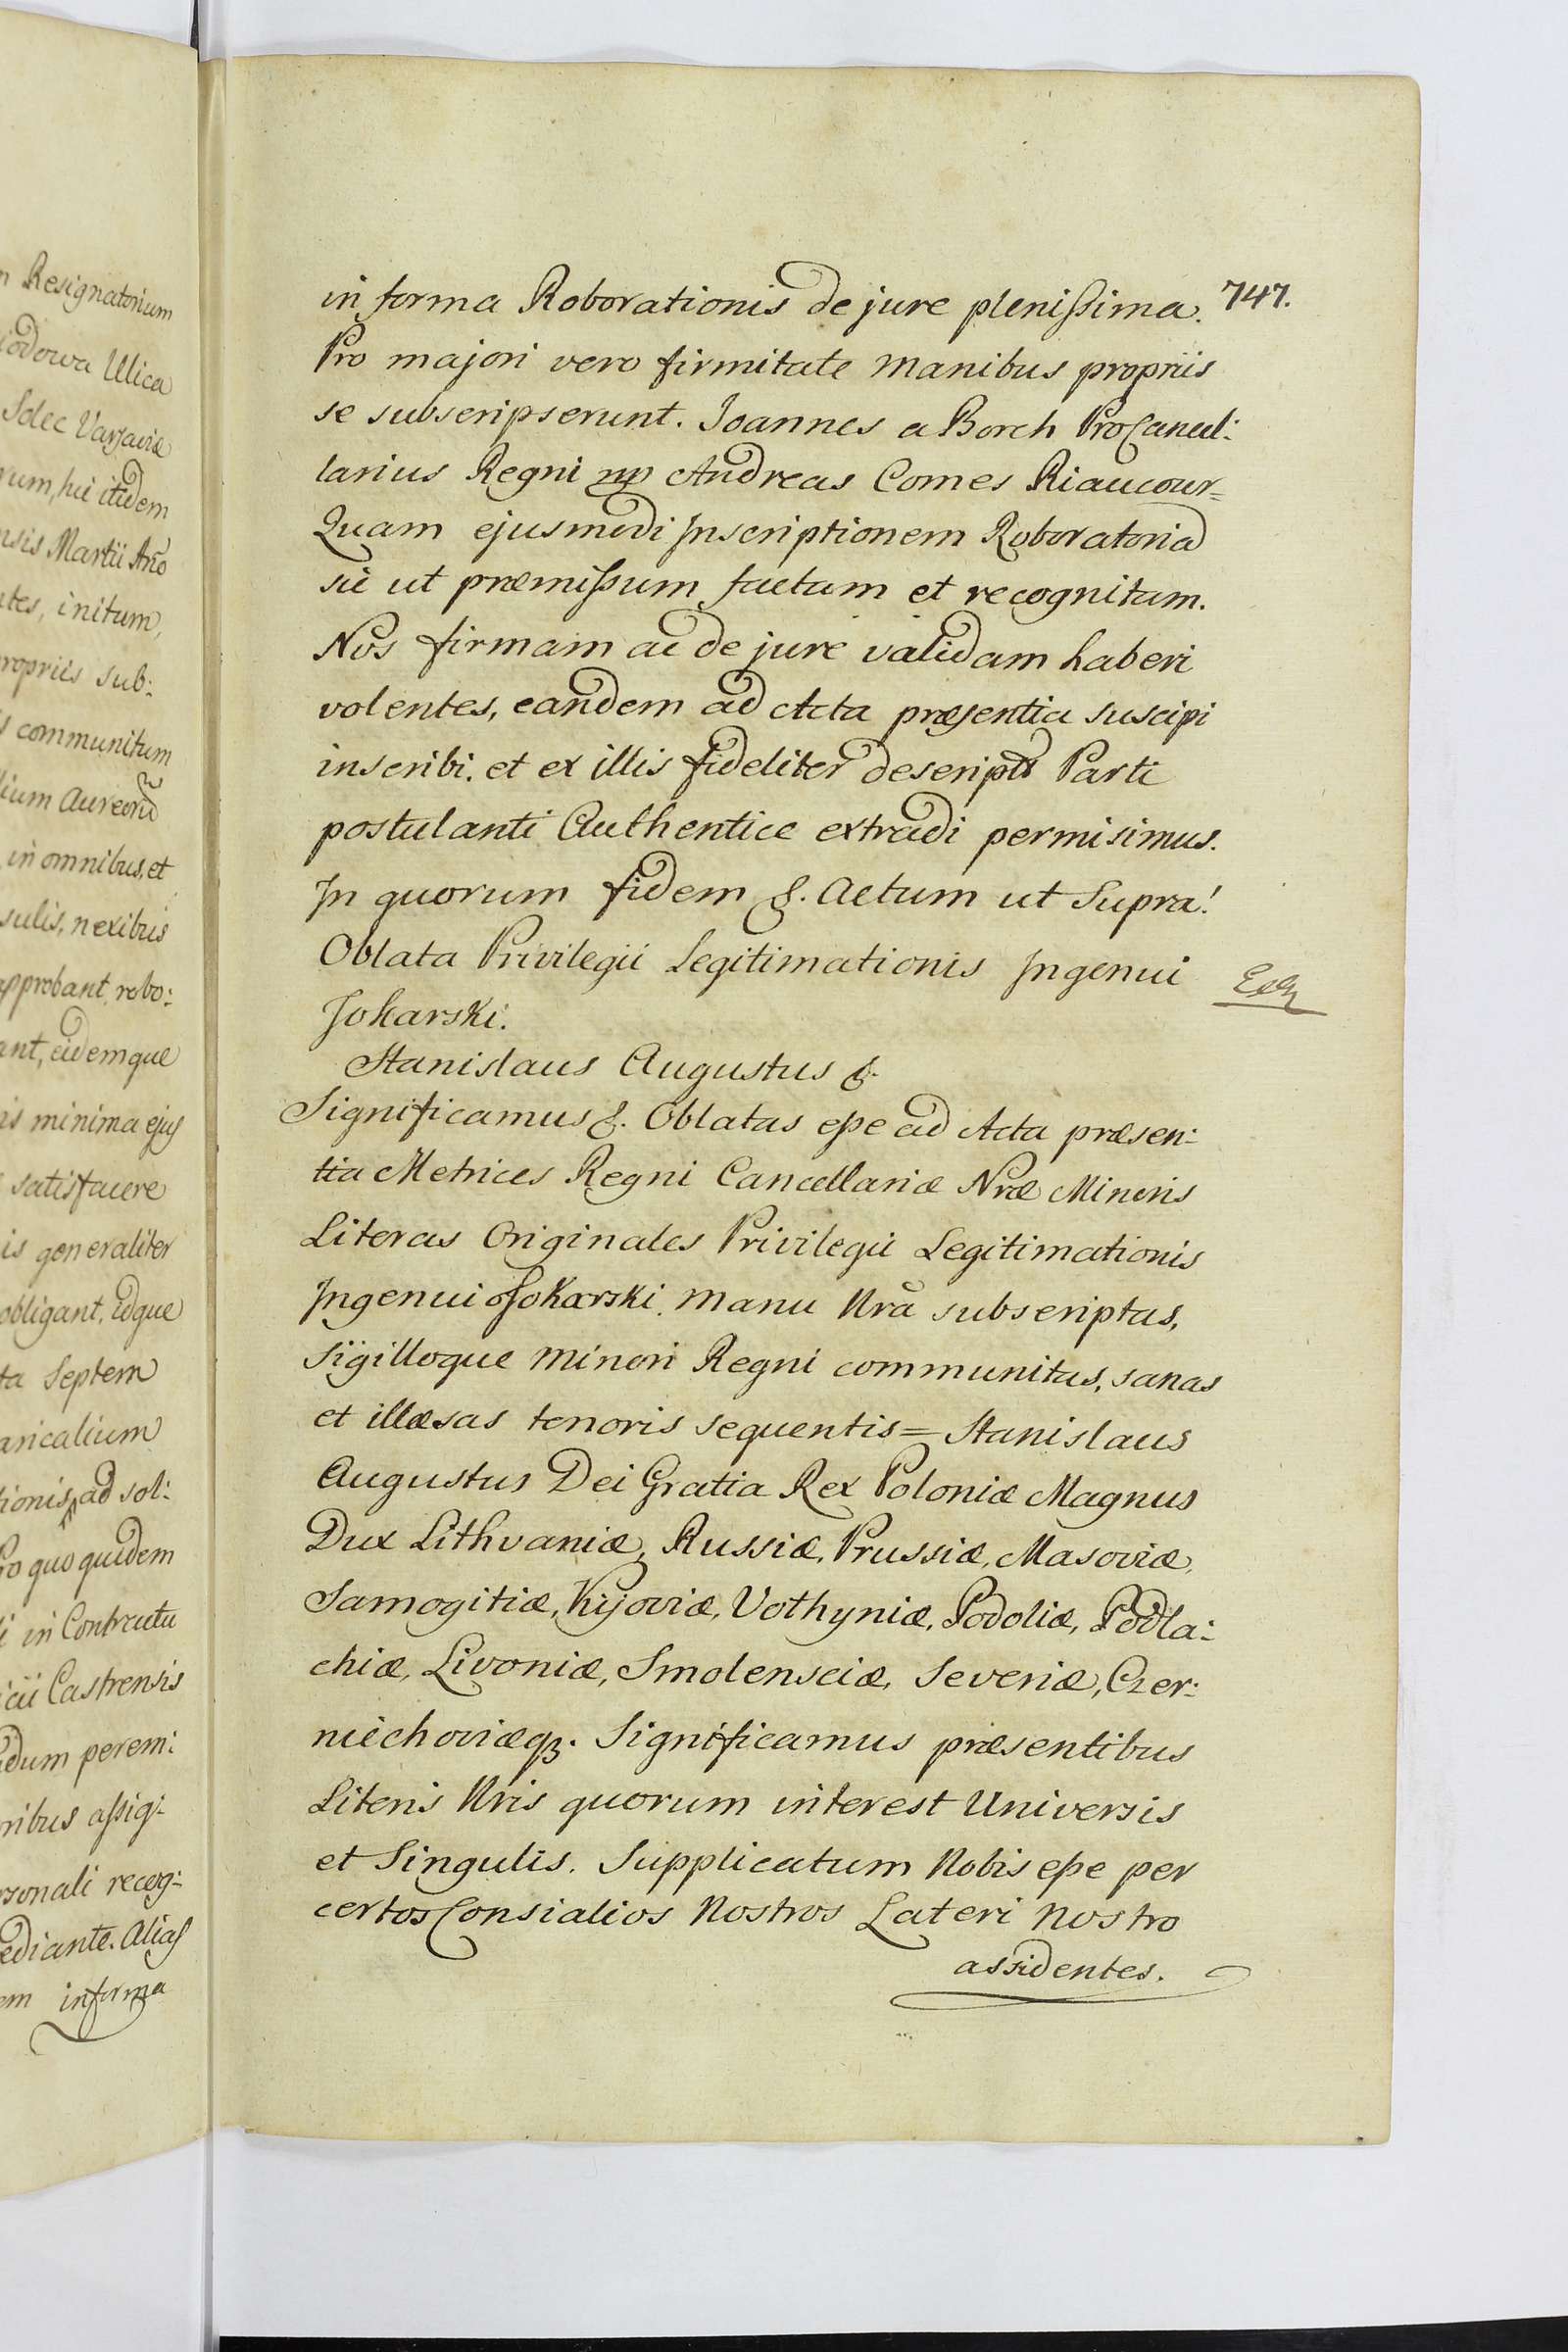 n Resignatorium
iodowa Ulica
Solec Varsaviæ
um, hic itidem
nsis Martii Año
ntes, initum,
ropriis sub:
s communitum
lium Aureorũ
in omnibus, et
sulis, nexibus
approbant, robo:
ant, eidemque
is minima ejus
satisfacere
is generaliter
obligant, Idque
ta Septem
aricalium
tionis, ad sol:
Pro quo quidem
i in Contractu
icii Castrensis
dum peremi:
nibus assig:
rsonali recog:
ediante. Alias
em in forma
747.
in forma Roborationis de jure plenissima.
Pro majori vero firmitate manibus propriis
se subscripserunt. Joannes a Borch ProCancel:
larius Regni mp Andreas Comes Riaucour=
Quam ejusmodi Inscriptionem Roboratoriã
sic ut præmissum factam et recognitam.
Nos firmam ac de jure validam haberi
volentes, eandem ad Acta præsentia suscipi
inscribi, et ex illis fideliter descriptã Parti
postulanti Authentice extradi permisimus.
In quorum fidem &. Actum ut Supra!
Oblata Privilegii Legitimationis Ingenui
Jokarski.
Stanislaus Augustus &.
Significamus &. Oblatas esse ad Acta præsen:
tia Metrices Regni Cancellariæ Nræ Minoris
Literas Originales Privilegii Legitimationis
Ingenui Jokarski manu Nrã subscriptas,
Sigilloque minori Regni communitas, sanas
et illæsas tenoris sequentis = Stanislaus
Augustus Dei Gratia Rex Poloniæ Magnus
Dux Lithvaniæ, Russiæ, Prussiæ, Masoviæ,
Samogitiæ, Kijoviæ, Vothyniæ, Podoliæ, Podla:
chiæ, Livoniæ, Smolensciæ, Severiæ, Czer:
niechoviæq3. Significamus præsentibus
Literis Nris quorum interest Universis
et Singulis. Supplicatum Nobis esse per
certos Consialios Nostros Lateri nostro
assidentes.